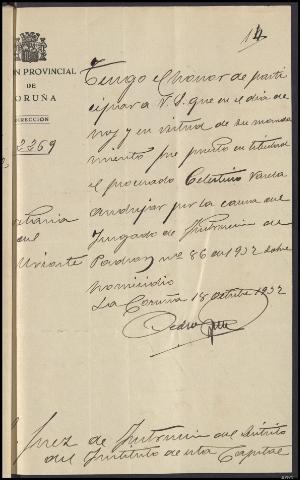 14
ON PROVINCIAL
DE
ORUÑA
DIRECCION
2369
Tengo el honor de parti
cipar a V.S. que en el dia de
hoy y en virtud de su manda
miento fue puesto en libertad
el procesado Celestino Varela
Andujar por la causa del
Juzgado de Instruccion de
Padron nº 86 de 1932 sobre
homicidio
La Coruña 18 octubre 1932
Pedro
Juez de Instruccion del Distrito
del Instituto de esta Capital